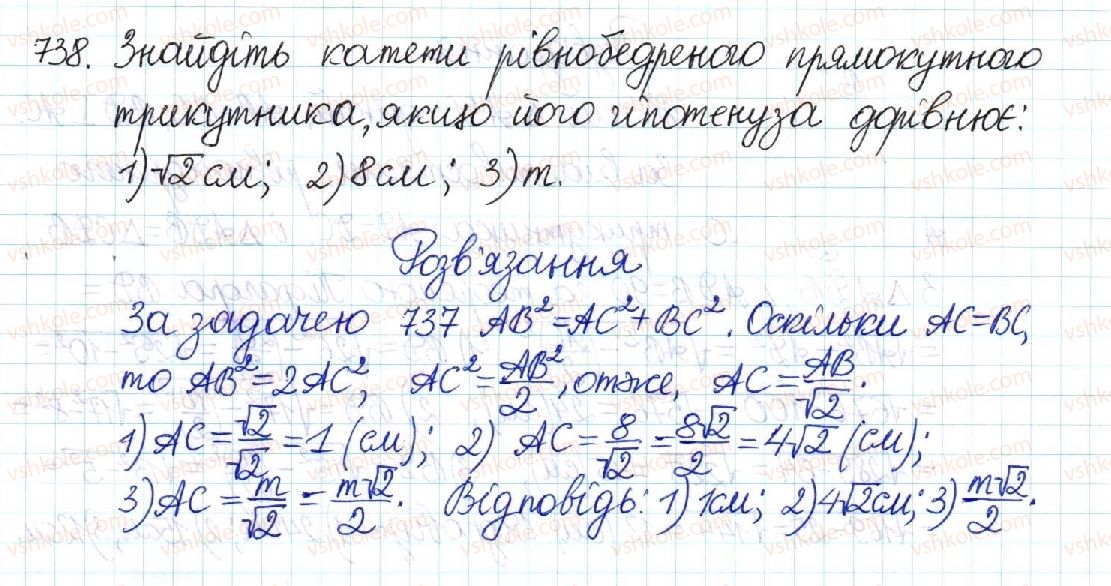 738. Знайдіть катети рівнобедреного прямокутного
трикутника, якщо його гіпотенуза дорівнює:
1) √2 см; 2) 8 см; 3) m.
Розв'язання
За задачею 737 AB² = AC² + BC². Оскільки AC = BC,
то AB² = 2AC², AC² = AB²/2, отже, AC = AB/√2.
1) AC = √2/√2 = 1 (см); 2) AC = 8/√2 = 8√2/2 = 4√2 (см);
3) AC = m/√2 = m√2/2. Відповідь: 1) 1см; 2) 4√2см; 3) m√2/2.